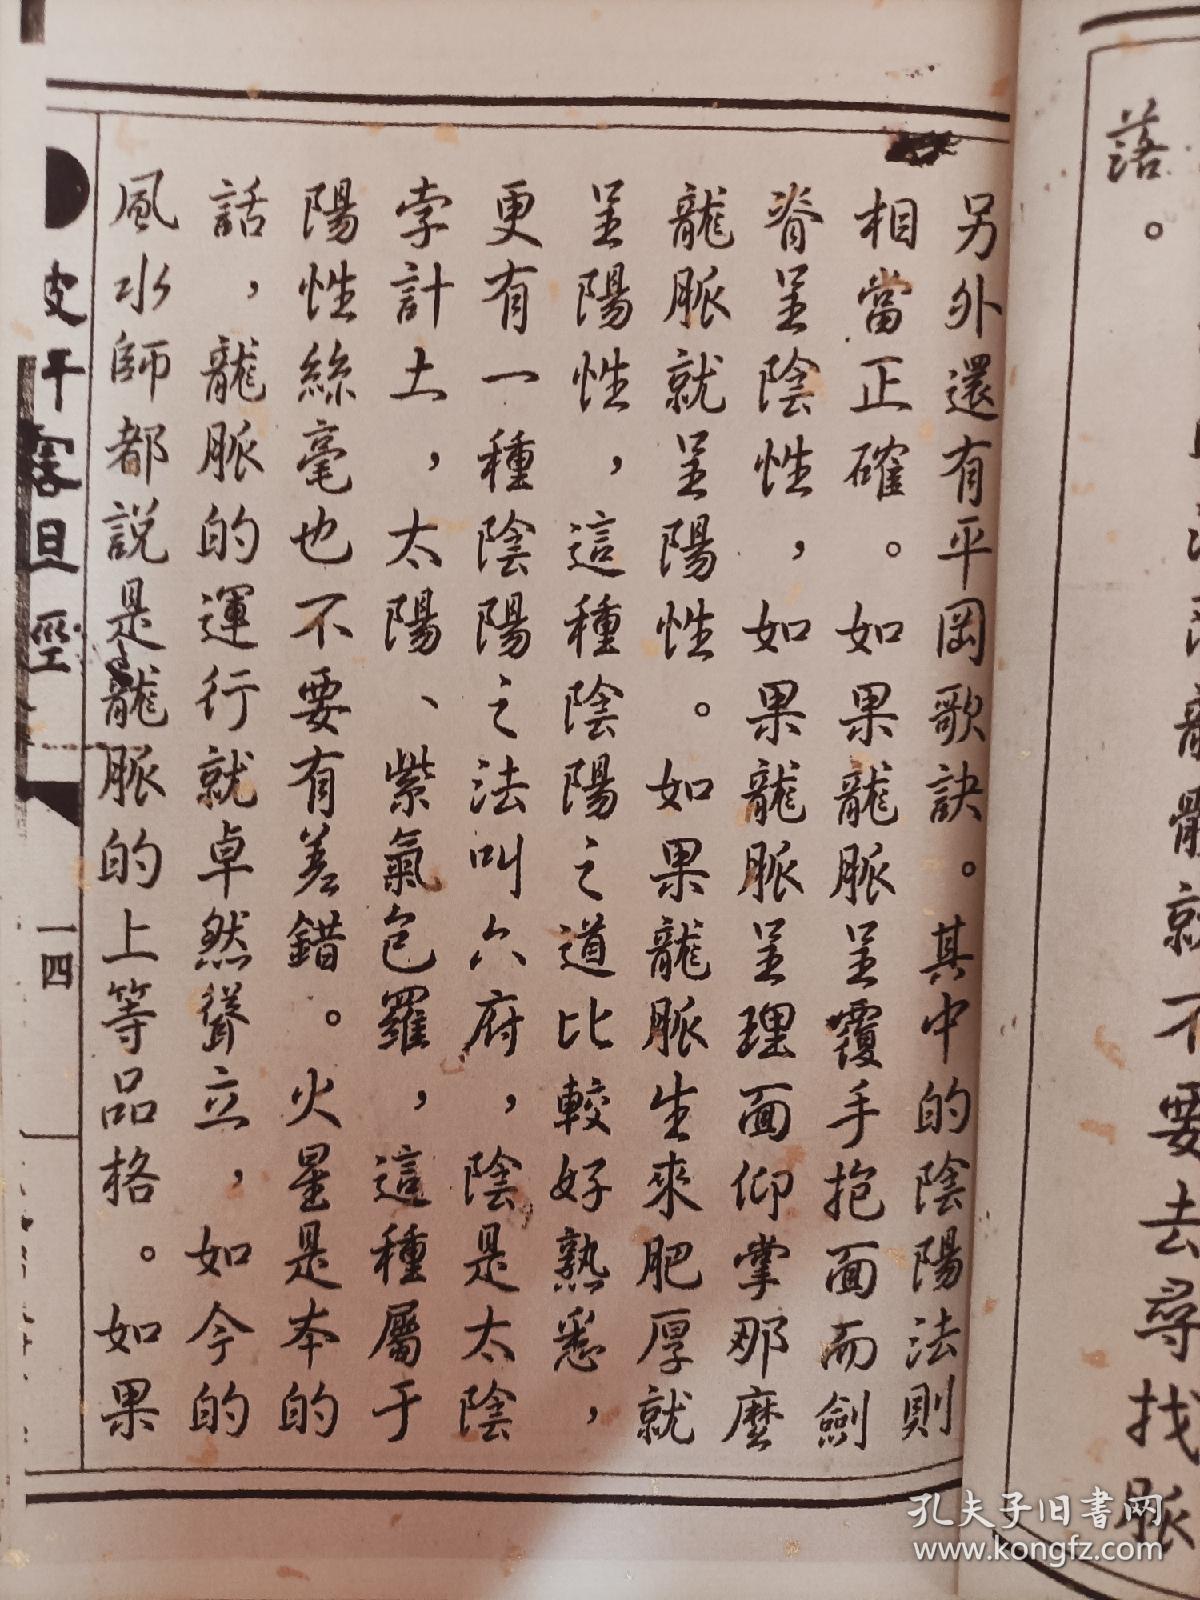 落。
就不要去尋找脈
另外還有平岡歌訣。其中的陰陽法則
相當正確。如果龍脈呈覆手抱面而劍
脊呈陰性，如果龍脈呈理面仰掌那麼
龍脈就呈陽性。如果龍脈生來肥厚就
呈陽性，這種陰陽之道比較好熟悉，
更有一種陰陽之法叫六府，陰是太陰
孛計土，太陽、紫氣包羅，這種屬于
陽性絲毫也不要有差錯。火星是本的
話，龍脈的運行就卓然聳立，如今的
風水師都説是龍脈的上等品格。如果
一四
孔夫子旧書网
www.kongfz.com